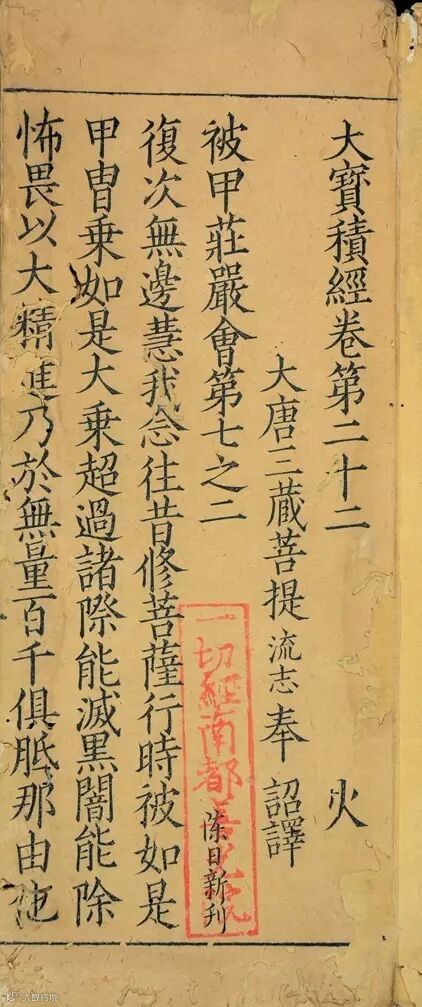 大寶積經卷第二十二 火
大唐三藏菩提流志奉 詔譯
被甲莊嚴會第七之二
復次無邊慧我念往昔修菩薩行時被如是
甲冑乘如是大乘超過諸際能滅黑闇能除
怖畏以大精進乃於無量百千俱胝那由他
一切經南都善光院
日新刊